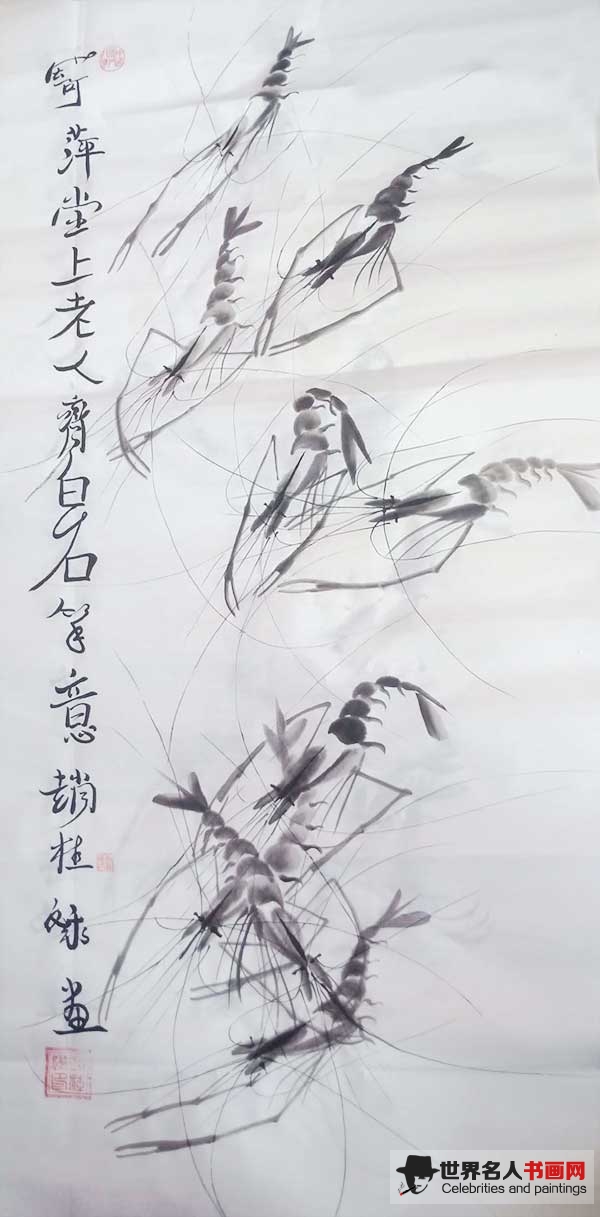 寄萍堂上老人齊白石筆意趙桂畫
世界名人书画网
Celebrities and paintings